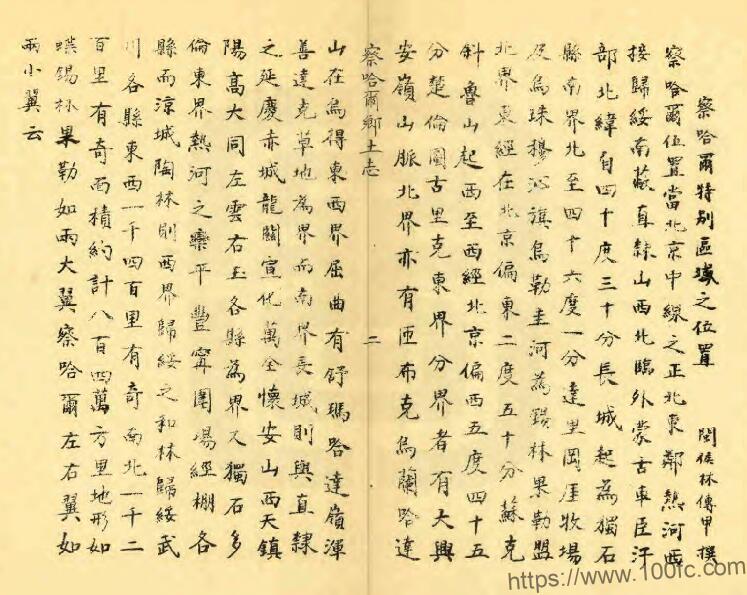 察哈爾特別區域之位置　閩侯林傳甲撰
察哈爾位置當北京中線之正北東鄰熱河西
接歸綏南蔽直隸山西北臨外蒙古車臣汗
部北緯自四十度三十分長城起為獨石
縣南界北至四十六度一分達里岡厓牧場
及烏珠穆沁旗烏勒圭河為錫林果勒盟
北界東經在北京偏東二度五十分蘇克
斜魯山起西至西經北京偏西五度四十五
分楚倫圖古里克東界分界者有大興
安嶺山脈北界亦有匝布克烏蘭哈達
察哈爾鄉土志　二
山在烏得東西界屈曲有舒瑪哈達嶺渾
善達克草地為界而南界長城則與直隸
之延慶赤城龍關宣化萬全懷安山西天鎮
陽高大同左雲右玉各縣為界又獨石多
倫東界熱河之灤平豐甯圍場經棚各
縣而涼城陶林則西界歸綏之和林歸綏武
川各縣東西一千四百里有奇南北一千二
百里有奇面積約計八百四萬方里地形如
蝶錫林果勒如兩大翼察哈爾左右翼如
兩小翼云
https://www.100fc.com